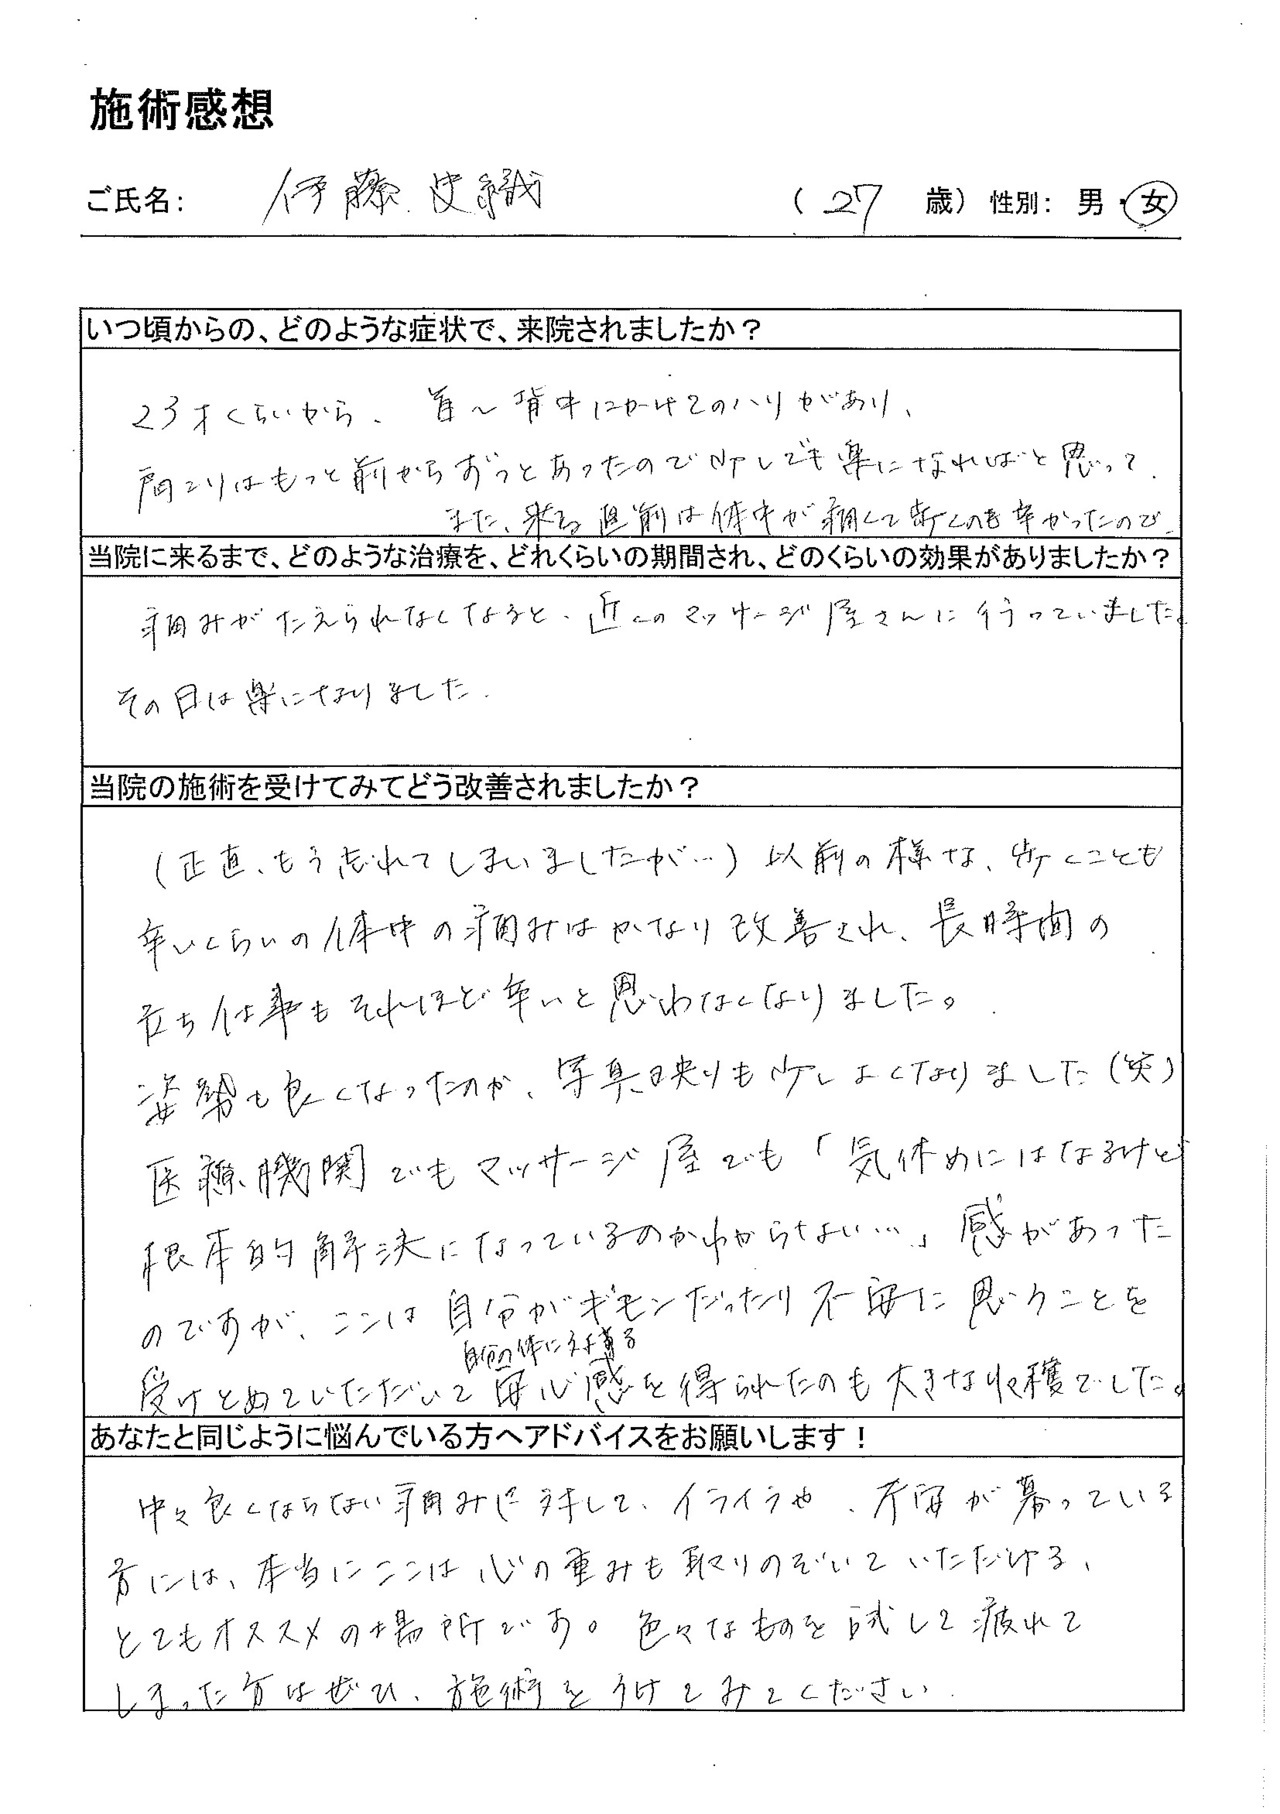 施術感想
ご氏名: 伊藤 史織 (27 歳) 性別: 男・女
いつ頃からの、どのような症状で、来院されましたか?
23才くらいから、首〜背中にかけてのハリがあり、
肩こりはもっと前からずっとあったので少しでも楽になればと思って.
また、来る直前は体中が痛くて歩くのも辛かったので.
当院に来るまで、どのような治療を、どれくらいの期間され、どのくらいの効果がありましたか?
痛みがたえられなくなると、近くのマッサージ屋さんに行っていました。
その日は楽になりました.
当院の施術を受けてみてどう改善されましたか?
(正直、もう忘れてしまいましたが…) 以前の様な、歩くことも
辛いくらいの体中の痛みはかなり改善され、長時間の
立ち仕事もそれほど辛いと思わなくなりました。
姿勢も良くなったのか、写真映りも少しよくなりました(笑)
医療機関でもマッサージ屋でも「気休めにはなるけど
根本的解決になっているのかわからない…」感があった
のですが、ここは自分がギモンだったり不安に思うことを
自分の体に対する
受けとめていただいて安心感を得られたのも大きな収穫でした。
あなたと同じように悩んでいる方へアドバイスをお願いします!
中々良くならない痛みに対して、イライラや、不安が募っている
方には、本当にここは心の重みも取りのぞいていただける、
とてもオススメの場所です。色々なものを試して疲れて
しまった方はぜひ、施術をうけてみてください.